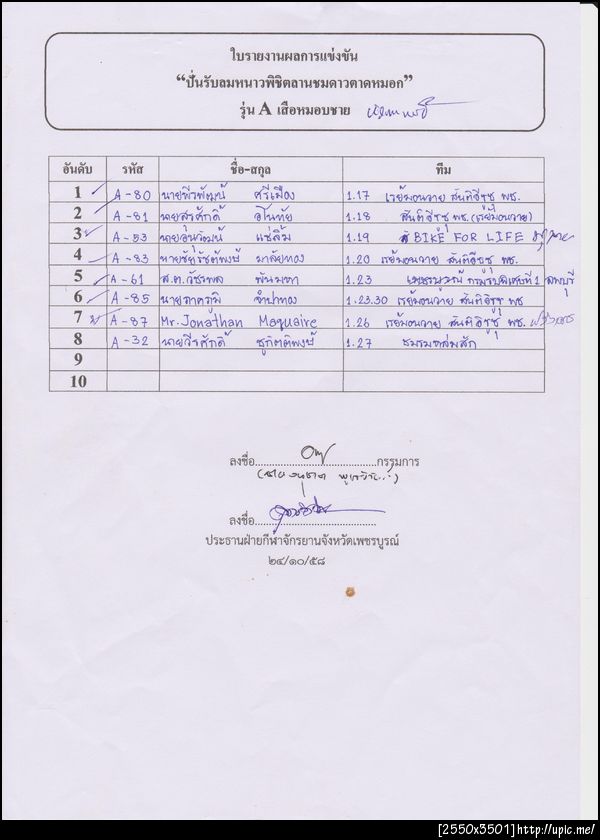 ใบรายงานผลการแข่งขัน
“ปั่นรับลมหนาวพิชิตลานชมดาวตาดหมอก”
รุ่น A เสือหมอบชาย
อันดับ รหัส ชื่อ-สกุล ทีม
1 A-80 นายพีรพัฒน์ ศรีเมือง 1.17 เรย์มอนวาย สันติอีซูซุ พช.
2 A-81 นายสุรศักดิ์ อโนทัย 1.18 สันติอีซูซุ พช. (เรย์มอนวาย)
3 A-53 แซ่ลิ้ม 1.19 BIKE FOR LIFE
4 A-83 มาลัยทอง 1.20 เรย์มอนวาย สันติอีซูซุ พช.
5 A-61 ส.ต. วัชรพล พันมหา 1.23 ลพบุรี
6 A-85 นายภาคภูมิ จำปาทอง 1.23.30 เรย์มอนวาย สันติอีซูซุ พช
7 A-87 Mr. Jonathan Maguaire 1.26 เรย์มอนวาย สันติอีซูซุ พช.
8 A-32 นายวีรศักดิ์ ชูกิตติพงษ์ 1.27 ชมรมหล่มสัก
9
10
ลงชื่อ กรรมการ
ลงชื่อ
ประธานฝ่ายกีฬาจักรยานจังหวัดเพชรบูรณ์
๒๔/๑๐/๕๘
[2550x3501]http://upic.me/